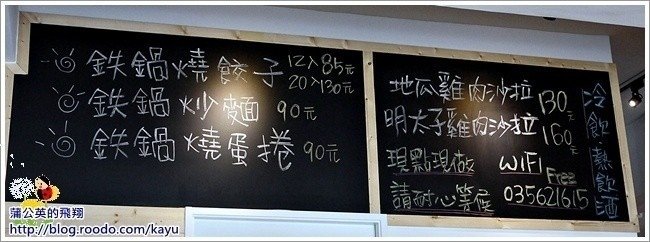 鉄鍋燒餃子 12入85元
20入130元
鉄鍋炒麵 90元
鉄鍋燒蛋捲 90元
地瓜雞肉沙拉 130元
明太子雞肉沙拉 160元
現點現做 WiFi Free
請耐心等候 035621615
冷飲熱飲酒
蒲公英的飛翔
http://blog.roodo.com/kayu